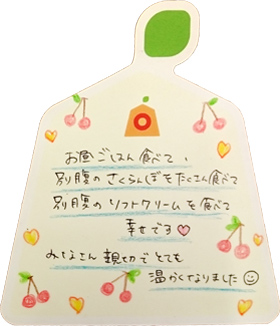 お昼ごはん食べて、
別腹のさくらんぼをたくさん食べて
別腹のソフトクリームを食べて
幸せでる♡
みなさん親切でとても
温かくなりました☺